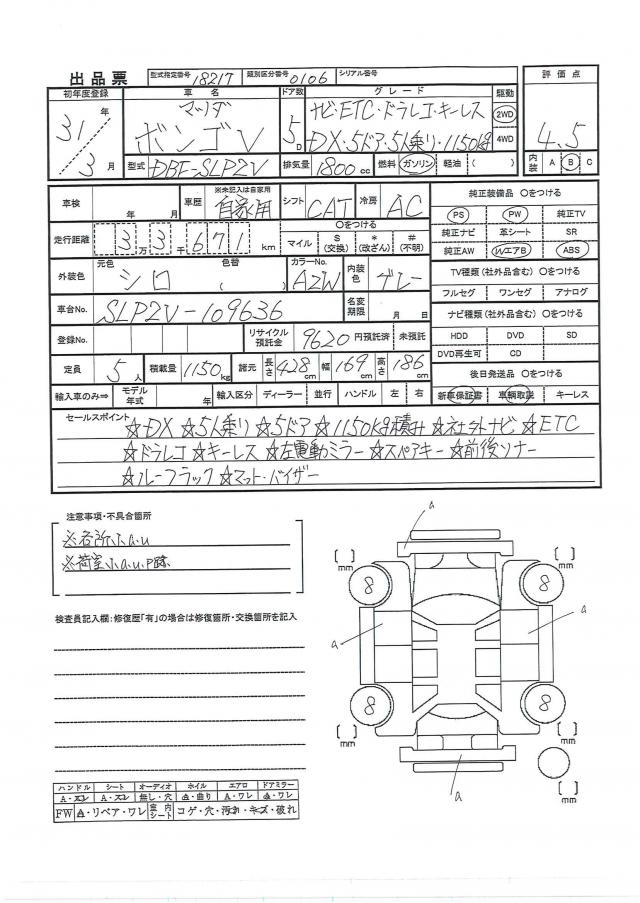 出品票 型式指定番号 18217 類別区分番号 0106 シリアル番号
初年度登録 車名 ドア数 グレード 駆動 評価点
31年 マツダ 5D ナビ・ETC・ドラレコ・キーレス 2WD 4.5
3月 ボンゴV DX・5ドア・5人乗り・1150kg 4WD
型式 DBF-SLP2V 排気量 1800cc 燃料 ガソリン 軽油 ( ) 内装 A B C
車検 年 月 車歴 ※未記入は自家用 自家用 シフト CAT 冷房 AC 純正装備品 ○をつける
走行距離 3万3千671km ○をつける マイル S(交換) *(改ざん) #(不明) PS PW 純正TV
純正ナビ 革シート SR
純正AW WエアB ABS
外装色 元色 シロ 色替 ( ) カラーNo. AZW 内装色 グレー TV種類(社外品含む) ○をつける
フルセグ ワンセグ アナログ
車台No. SLP2V-109636 名変期限 月 日 ナビ種類(社外品含む) ○をつける
登録No. リサイクル預託金 9620円預託済 未預託 HDD DVD SD
DVD再生可 CD
定員 5人 積載量 1150kg 諸元 長さ 428cm 幅 169cm 高さ 186cm 後日発送品 ○をつける
輸入車のみ⇒ モデル年式 年 輸入区分 ディーラー 並行 ハンドル 左 右 新車保証書 車輌取説 キーレス
セールスポイント
☆DX ☆5人乗り ☆5ドア ☆1150kg積み ☆社外ナビ ☆ETC
☆ドラレコ ☆キーレス ☆左電動ミラー ☆スペアキー ☆前後ソナー
☆ルーフラック ☆マット・バイザー
注意事項・不具合箇所
※各所小a.u
※荷室小a.u.P跡
検査員記入欄:修復歴「有」の場合は修復箇所・交換箇所を記入
a
[ ] mm 8 8 [ ] mm
a a
8 8
[ ] mm [ ] mm
a
[ ] mm
ハンドル シート オーディオ ホイル エアロ ドアミラー
A・スレ A・スレ 無し・穴 A・曲り A・ワレ A・ワレ
FW A・リペア・ワレ 室内シート コゲ・穴・汚れ・キズ・破れ